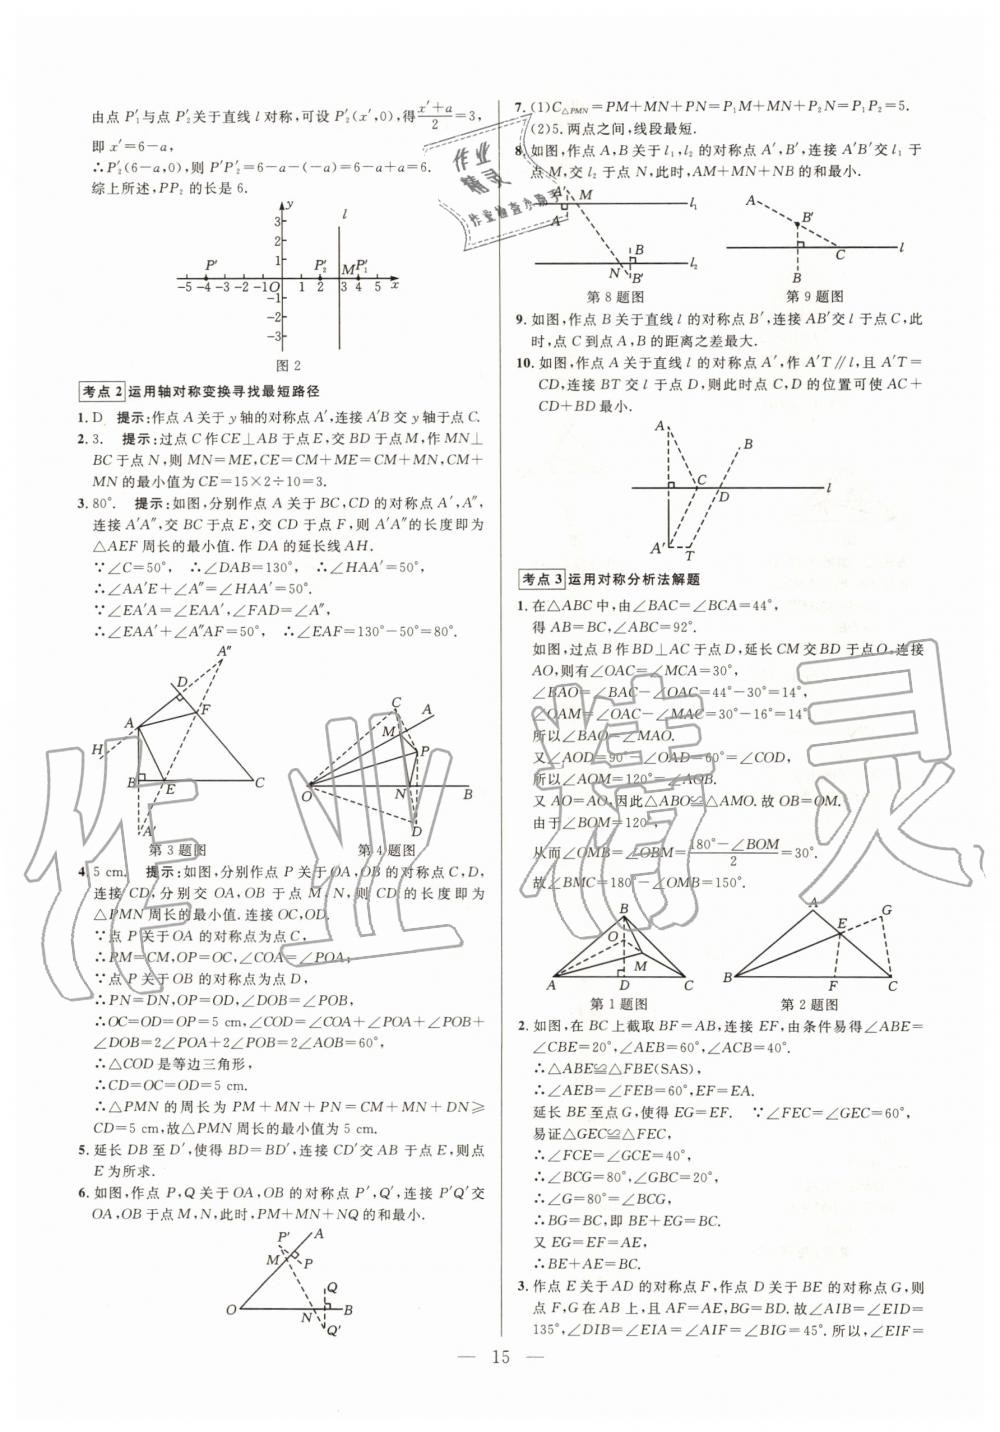 由点 P′₁与点 P′₂关于直线 l 对称,可设 P′₂(x′,0),得(x′+a)/2=3,
即 x′=6-a,
∴P′₂(6-a,0),则 P′P′₂=6-a-(-a)=6-a+a=6.
综上所述,PP₂ 的长是 6.
y l
3
2
1
P′ P′₂ M P′₁
-5 -4 -3 -2 -1 O 1 2 3 4 5 x
-1
-2
-3
图 2
考点 2 运用轴对称变换寻找最短路径
1. D 提示:作点 A 关于 y 轴的对称点 A′,连接 A′B 交 y 轴于点 C.
2. 3. 提示:过点 C 作 CE⊥AB 于点 E,交 BD 于点 M,作 MN⊥
BC 于点 N,则 MN=ME,CE=CM+ME=CM+MN,CM+
MN 的最小值为 CE=15×2÷10=3.
3. 80°. 提示:如图,分别作点 A 关于 BC,CD 的对称点 A′,A″,
连接 A′A″,交 BC 于点 E,交 CD 于点 F,则 A′A″的长度即为
△AEF 周长的最小值.作 DA 的延长线 AH.
∵∠C=50°, ∴∠DAB=130°, ∴∠HAA′=50°,
∴∠AA′E+∠A″=∠HAA′=50°.
∵∠EA′A=∠EAA′,∠FAD=∠A″,
∴∠EAA′+∠A″AF=50°, ∴∠EAF=130°-50°=80°.
A″ D F A H B E C A′
第 3 题图
C A M P O N B D
第 4 题图
4. 5 cm. 提示:如图,分别作点 P 关于 OA,OB 的对称点 C,D,
连接 CD,分别交 OA,OB 于点 M,N,则 CD 的长度即为
△PMN 周长的最小值.连接 OC,OD.
∵点 P 关于 OA 的对称点为点 C,
∴PM=CM,OP=OC,∠COA=∠POA;
∵点 P 关于 OB 的对称点为点 D,
∴PN=DN,OP=OD,∠DOB=∠POB,
∴OC=OD=OP=5 cm,∠COD=∠COA+∠POA+∠POB+
∠DOB=2∠POA+2∠POB=2∠AOB=60°,
∴△COD 是等边三角形,
∴CD=OC=OD=5 cm.
∴△PMN 的周长为 PM+MN+PN=CM+MN+DN≥
CD=5 cm,故△PMN 周长的最小值为 5 cm.
5. 延长 DB 至 D′,使得 BD=BD′,连接 CD′交 AB 于点 E,则点
E 为所求.
6. 如图,作点 P,Q 关于 OA,OB 的对称点 P′,Q′,连接 P′Q′交
OA,OB 于点 M,N,此时,PM+MN+NQ 的和最小.
P′ A M P Q O N B Q′
7. (1)C△PMN=PM+MN+PN=P₁M+MN+P₂N=P₁P₂=5.
(2)5. 两点之间,线段最短.
8. 如图,作点 A,B 关于 l₁,l₂ 的对称点 A′,B′,连接 A′B′交 l₁ 于
点 M,交 l₂ 于点 N,此时,AM+MN+NB 的和最小.
A′ M l₁ A B N l₂ B′
第 8 题图
A B′ C l B
第 9 题图
9. 如图,作点 B 关于直线 l 的对称点 B′,连接 AB′交 l 于点 C,此
时,点 C 到点 A,B 的距离之差最大.
10. 如图,作点 A 关于直线 l 的对称点 A′,作 A′T∥l,且 A′T=
CD,连接 BT 交 l 于点 D,则此时点 C,D 的位置可使 AC+
CD+BD 最小.
A B C D l A′ T
考点 3 运用对称分析法解题
1. 在△ABC 中,由∠BAC=∠BCA=44°,
得 AB=BC,∠ABC=92°.
如图,过点 B 作 BD⊥AC 于点 D,延长 CM 交 BD 于点 O,连接
AO,则有∠OAC=∠MCA=30°,
∠BAO=∠BAC-∠OAC=44°-30°=14°,
∠OAM=∠OAC-∠MAC=30°-16°=14°
所以∠BAO=∠MAO.
又∠AOD=90°-∠OAD=60°=∠COD,
所以∠AOM=120°=∠AOB.
又 AO=AO,因此△ABO≌△AMO.故 OB=OM.
由于∠BOM=120°,
从而∠OMB=∠OBM=(180°-∠BOM)/2=30°.
故∠BMC=180°-∠OMB=150°.
B O M A D C
第 1 题图
A G E B F C
第 2 题图
2. 如图,在 BC 上截取 BF=AB,连接 EF,由条件易得∠ABE=
∠CBE=20°,∠AEB=60°,∠ACB=40°.
∴△ABE≌△FBE(SAS).
∴∠AEB=∠FEB=60°,EF=EA.
延长 BE 至点 G,使得 EG=EF. ∵∠FEC=∠GEC=60°,
易证△GEC≌△FEC,
∴∠FCE=∠GCE=40°,
∴∠BCG=80°,∠GBC=20°,
∴∠G=80°=∠BCG,
∴BG=BC,即 BE+EG=BC.
又 EG=EF=AE,
∴BE+AE=BC.
3. 作点 E 关于 AD 的对称点 F,作点 D 关于 BE 的对称点 G,则
点 F,G 在 AB 上,且 AF=AE,BG=BD.故∠AIB=∠EID=
135°,∠DIB=∠EIA=∠AIF=∠BIG=45°.所以,∠EIF=
— 15 —
作业
精灵
作业检查小助手
作业精灵